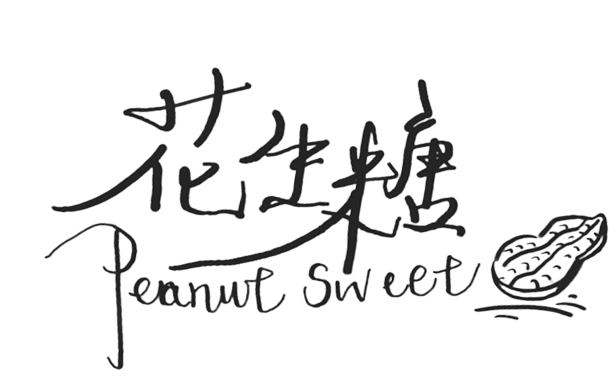 花生糖
Peanut Sweet